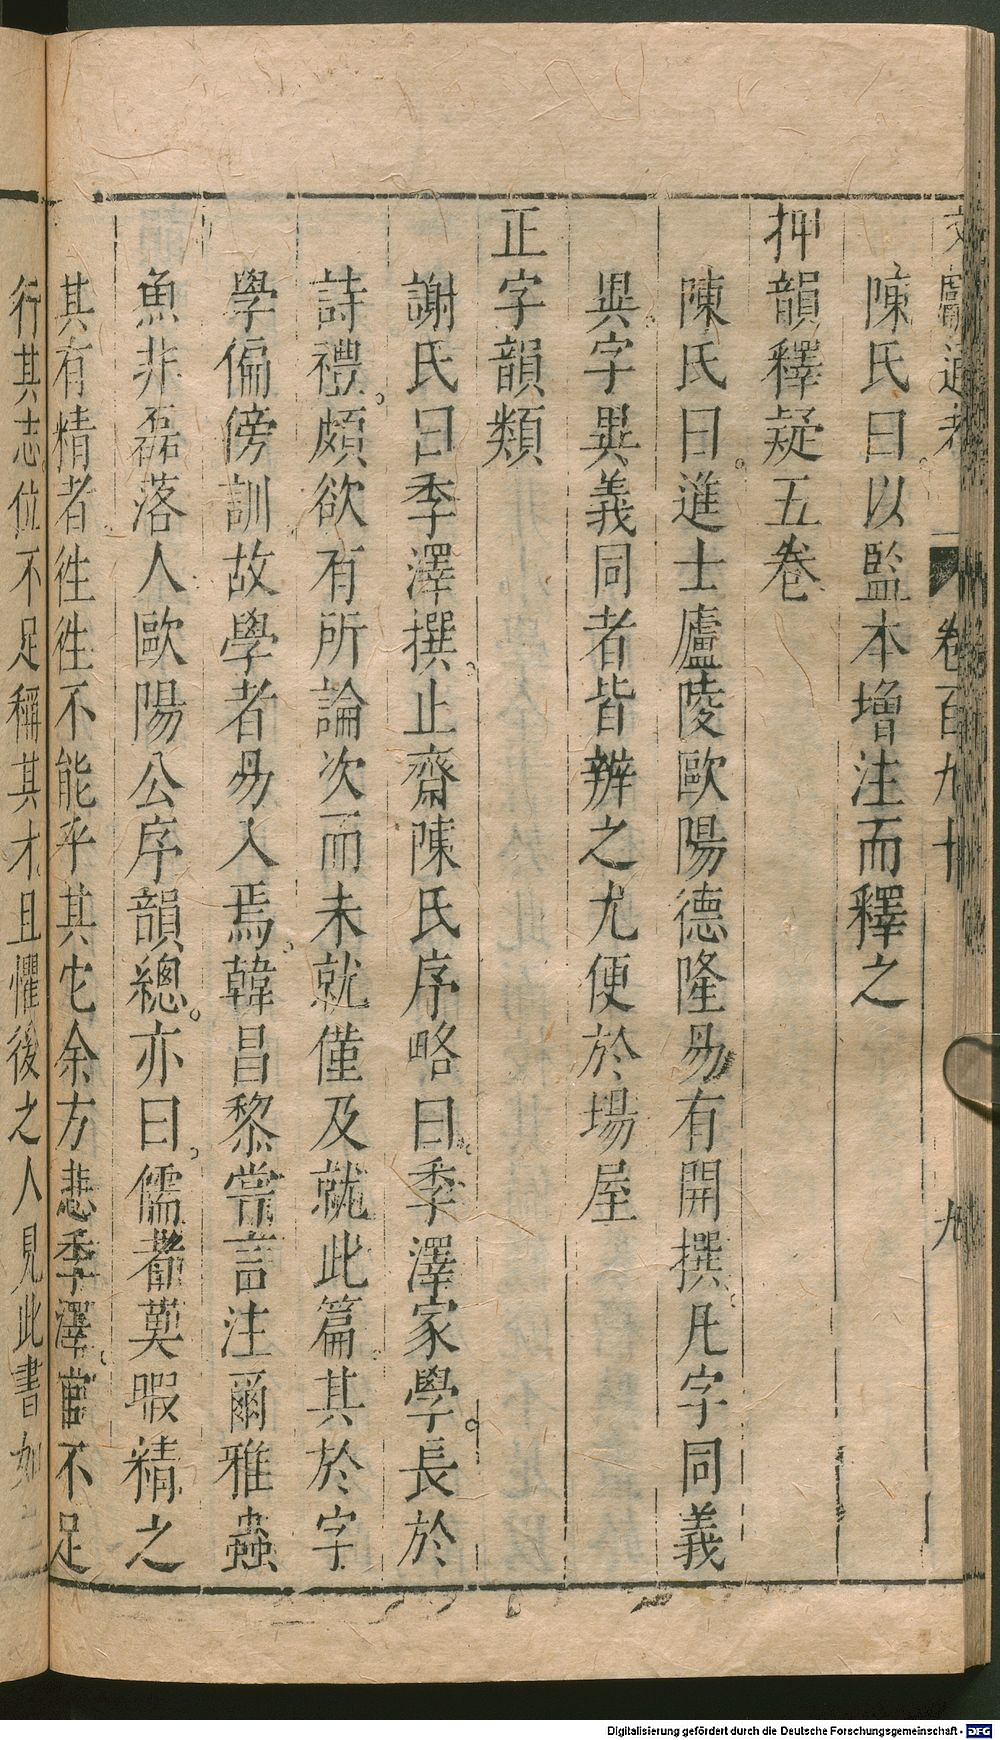 文獻通考 卷百九十 九
陳氏曰以監本增注而釋之
押韻釋疑五卷
陳氏曰進士廬陵歐陽德隆昜有開撰凡字同義
異字異義同者皆辨之尤便於場屋
正字韻類
謝氏曰季澤撰止齋陳氏序略曰季澤家學長於
詩禮頗欲有所論次而未就僅及就此篇其於字
學偏傍訓故學者昜入焉韓昌黎嘗言注爾雅蟲
魚非磊落人歐陽公序韻總亦曰儒者莫暇精之
其有精者徃徃不能乎其它余方悲季澤官不足
行其志位不足稱其才且懼後之人見此書如
Digitalisierung gefördert durch die Deutsche Forschungsgemeinschaft - DFG